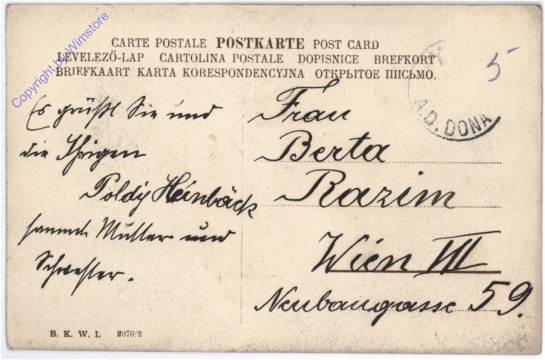 CARTE POSTALE POSTKARTE POST CARD
LEVELEZŐ-LAP CARTOLINA POSTALE DOPISNICE BREFKORT
BRIEFKAART KARTA KORESPONDENCYJNA ОТКРЫТОЕ ПИСЬМО.
Copyright by Wimstore
5
A.D. DONA
Es grüßt Sie und
die Ihrigen
Poldy Heinbäck
sammt Mutter und
Schwester.
Frau
Berta
Razim
Wien VII
Neubaugasse 59.
B. K. W. I. 2070/2